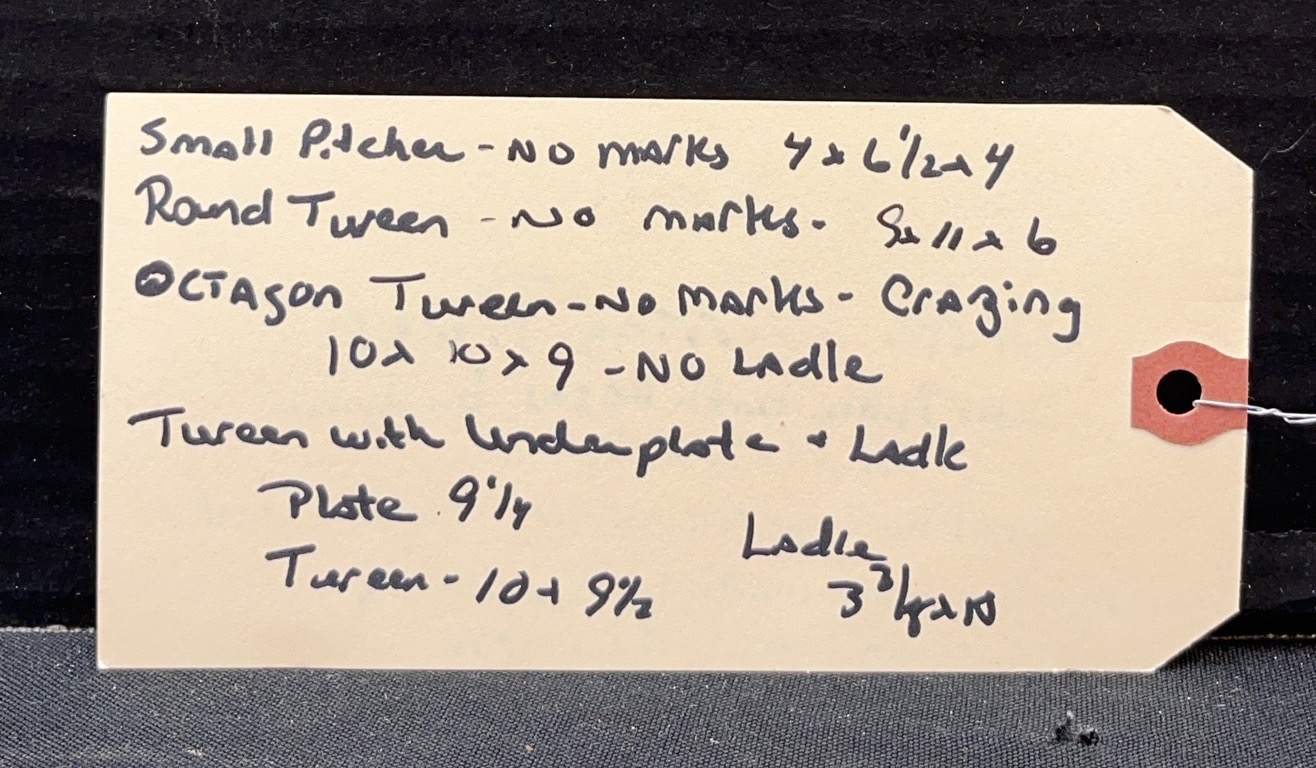 Small Pitcher - No marks 4 x 6 1/2 x 4
Round Tureen - No marks - 8 x 11 x 6
Octagon Tureen - No Marks - Crazing
10 x 10 x 9 - No Ladle
Tureen with Underplate + Ladle
Plate 9 1/4
Tureen - 10 x 9 1/2
Ladle
3 3/4 x 10